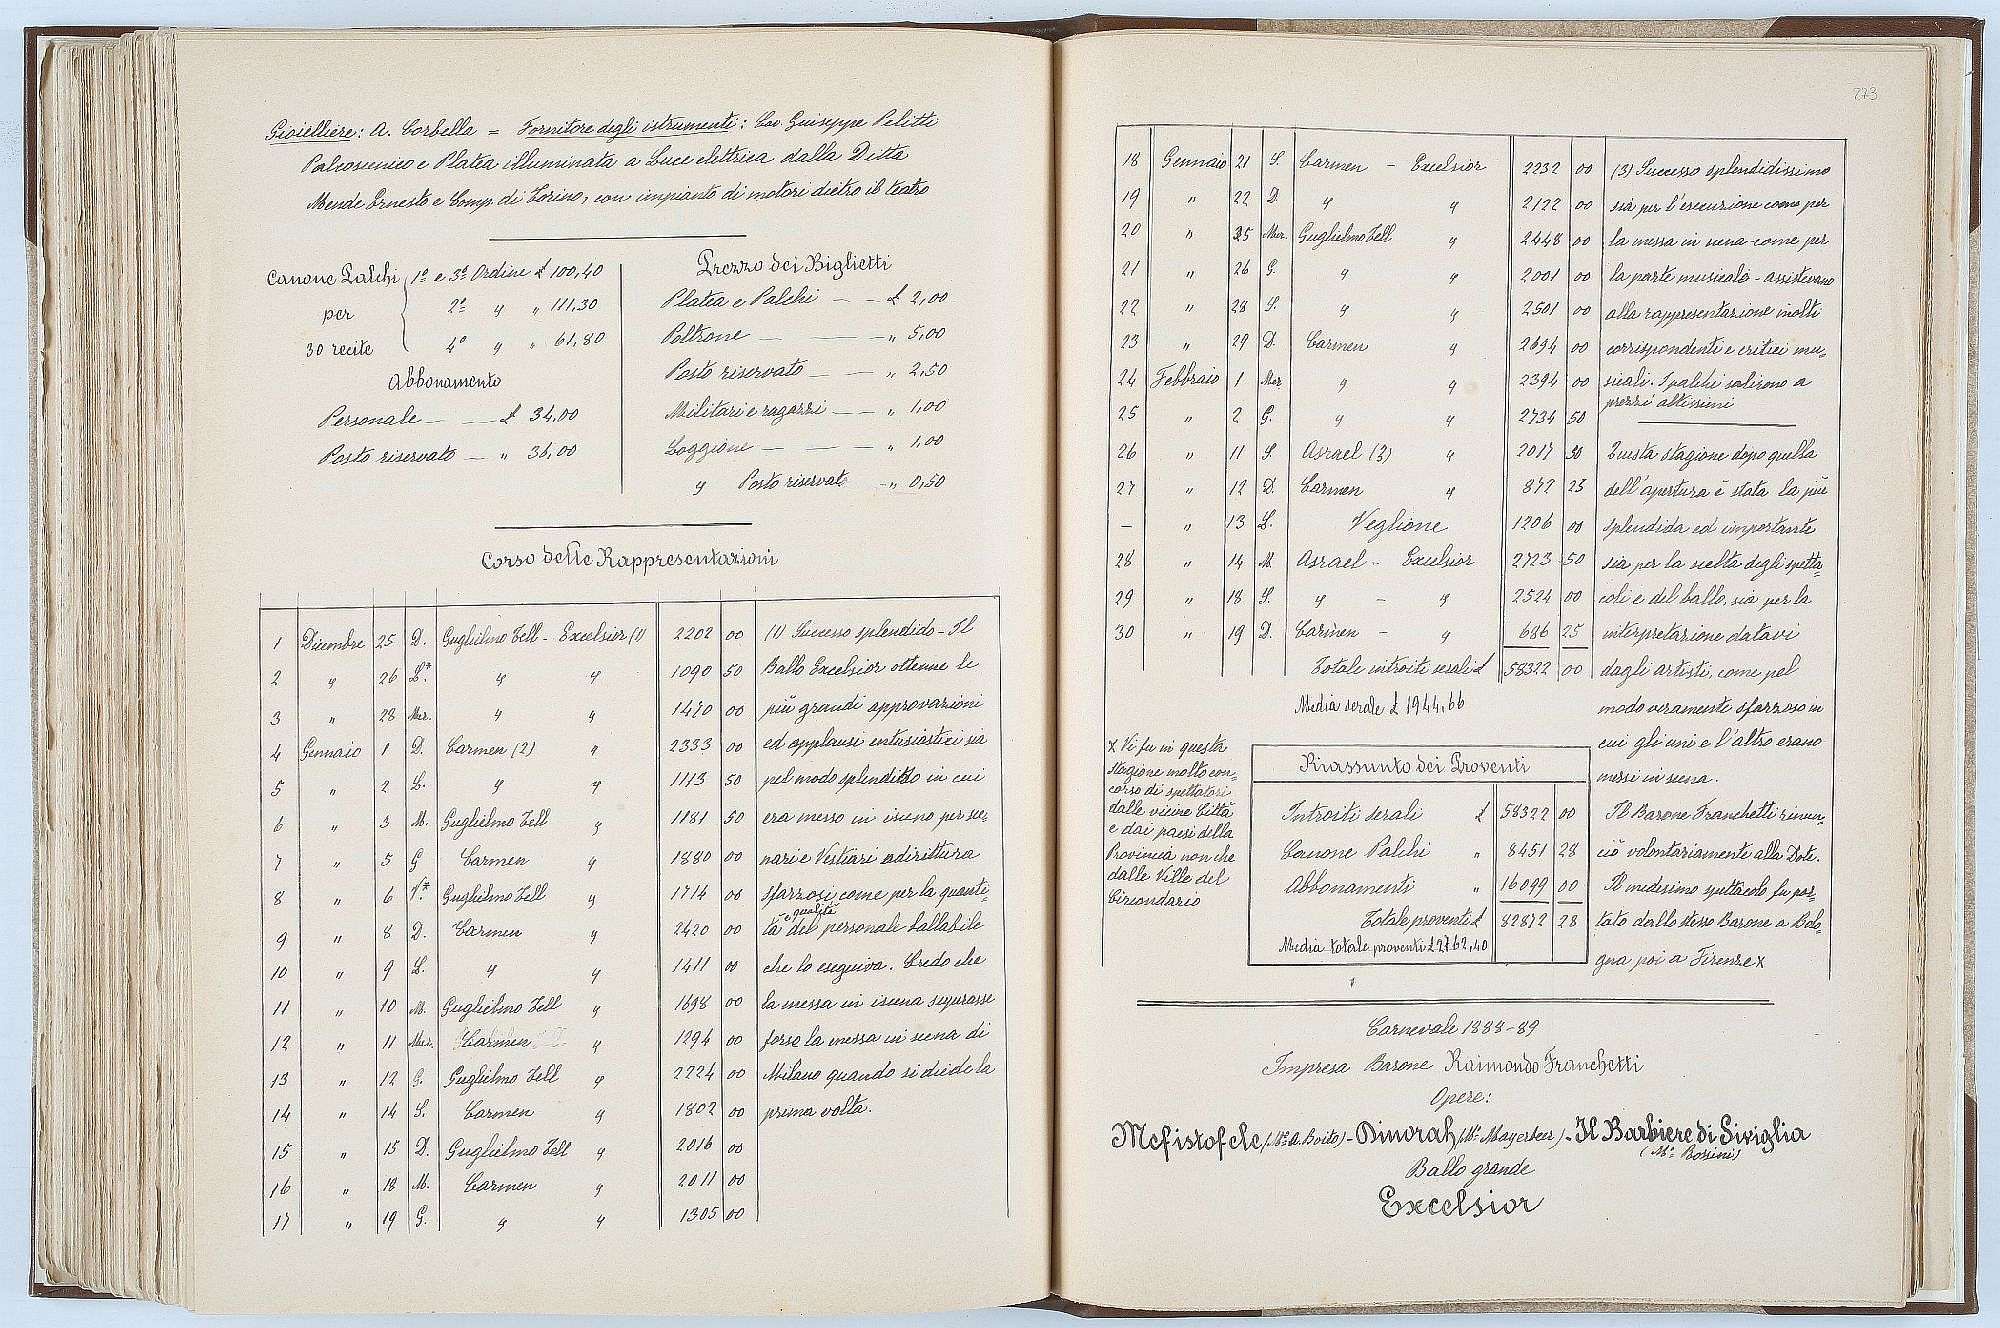 Gioielliere: A. Corbella = Fornitore degli istrumenti: Cav Guiseppe Pelitti
Palcoscenico e Platea illuminata a Luce elettrica dalla Ditta
Mende Ernesto e Comp. di Torino, con impianto di motori dietro il teatro
Canone Palchi
per
30 recite
1º e 3º Ordine £ 100,40
2º " " 111,30
4º " " 61,80
Abbonamento
Personale — — £ 34,00
Posto riservato — " 36,00
Prezzo dei Biglietti
Platea e Palchi — — £ 2,00
Poltrone — — — " 5,00
Posto riservato — — " 2,50
Militari e ragazzi — — " 1,00
Loggione — — — " 1,00
" Posto riservato — " 0,50
Corso delle Rappresentazioni
1 Dicembre 25 D. Guglielmo Tell - Excelsior (1) 2202 00 (1) Successo splendido - Il
2 " 26 L.* " " 1090 50 Ballo Excelsior ottenne le
3 " 28 Mer. " " 1470 00 più grandi approvazioni
4 Gennaio 1 D. Carmen (2) " 2333 00 ed applausi entusiastici sia
5 " 2 L. " " 1113 50 pel modo splendido in cui
6 " 3 M. Guglielmo Tell " 1181 50 era messo in iscena per sce-
7 " 5 G Carmen " 1880 00 nari e Vestiari adirittura
8 " 6 V.* Guglielmo Tell " 1714 00 sfarzosi come per la quanti-
9 " 8 D. Carmen " 2420 00 tà e qualità del personale ballabile
10 " 9 L. " " 1411 00 che lo eseguiva. Credo che
11 " 10 M. Guglielmo Tell " 1698 00 la messa in iscena superasse
12 " 11 Mer. Carmen " 1294 00 forso la messa in scena di
13 " 12 G. Guglielmo Tell " 2224 00 Milano quando si diede la
14 " 14 S. Carmen " 1802 00 prima volta.
15 " 15 D. Guglielmo Tell " 2016 00
16 " 18 M. Carmen " 2011 00
17 " 19 G. " " 1305 00
273
18 Gennaio 21 S. Carmen - Excelsior 2232 00 (3) Successo splendidissimo
19 " 22 D. " " 2122 00 sia per l'esecuzione come per
20 " 25 Mer. Guglielmo Tell " 2448 00 la messa in scena come per
21 " 26 G. " " 2001 00 la parte musicale - assistevano
22 " 28 S. " " 2501 00 alla rappresentazione molti
23 " 29 D. Carmen " 2694 00 corrispondenti e critici mu-
24 Febbraio 1 Mer " " 2394 00 sicali. I palchi salirono a
prezzi altissimi
25 " 2 G. " " 2734 50
26 " 11 S. Asrael (3) " 2017 90 Questa stagione dopo quella
27 " 12 D. Carmen " 872 25 dell'apertura è stata la più
— " 13 L. Veglione 1206 00 splendida ed importante
28 " 14 M. Asrael - Excelsior 2723 50 sia per la scelta degli spetta-
29 " 18 S. " - " 2524 00 coli e del ballo, sia per la
30 " 19 D. Carmen - " 686 25 interpretazione datavi
Totale introiti serali £ 58322 00 dagli artisti, come pel
Media serale £ 1944,66 modo veramente sfarzoso in
cui gli uni e l'altro erano
messi in scena.
x Vi fu in questa
stagione molto con-
corso di spettatori
dalle vicine Città
e dai paesi della
Provincia non che
dalle Ville del
Circondario
Riassunto dei Proventi
Introiti serali £ 58322 00
Canone Palchi " 8451 28
Abbonamenti " 16099 00
Totale proventi £ 82872 28
Media totale proventi £ 2762,40
Il Barone Franchetti rinun-
ciò volontariamente alla Dote.
Il medesimo spettacolo fu por-
tato dallo stesso Barone a Bolo-
gna poi a Firenze x
Carnevale 1888-89
Impresa Barone Raimondo Franchetti
Opere:
Mefistofele (Mº A. Boito) - Dinorah (Mº Mayerbeer) - Il Barbiere di Siviglia
(Mº Rossini)
Ballo grande
Excelsior